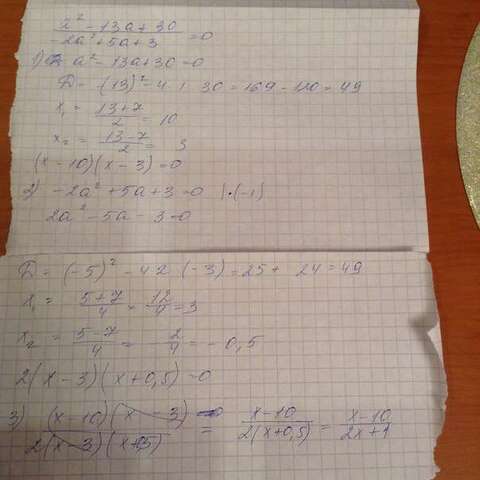 a² - 13a + 30 / -2a² + 5a + 3 = 0
1) a² - 13a + 30 = 0
D = (13)² - 4 · 1 · 30 = 169 - 120 = 49
x₁ = 13+7 / 2 = 10
x₂ = 13-7 / 2 = 3
(x - 10)(x - 3) = 0
2) -2a² + 5a + 3 = 0 | · (-1)
2a² - 5a - 3 = 0
D = (-5)² - 4 · 2 · (-3) = 25 + 24 = 49
x₁ = 5+7 / 4 = 12 / 4 = 3
x₂ = 5-7 / 4 = - 2 / 4 = - 0,5
2(x - 3)(x + 0,5) = 0
3) (x - 10)(x - 3) / 2(x - 3)(x + 0,5) = x - 10 / 2(x + 0,5) = x - 10 / 2x + 1